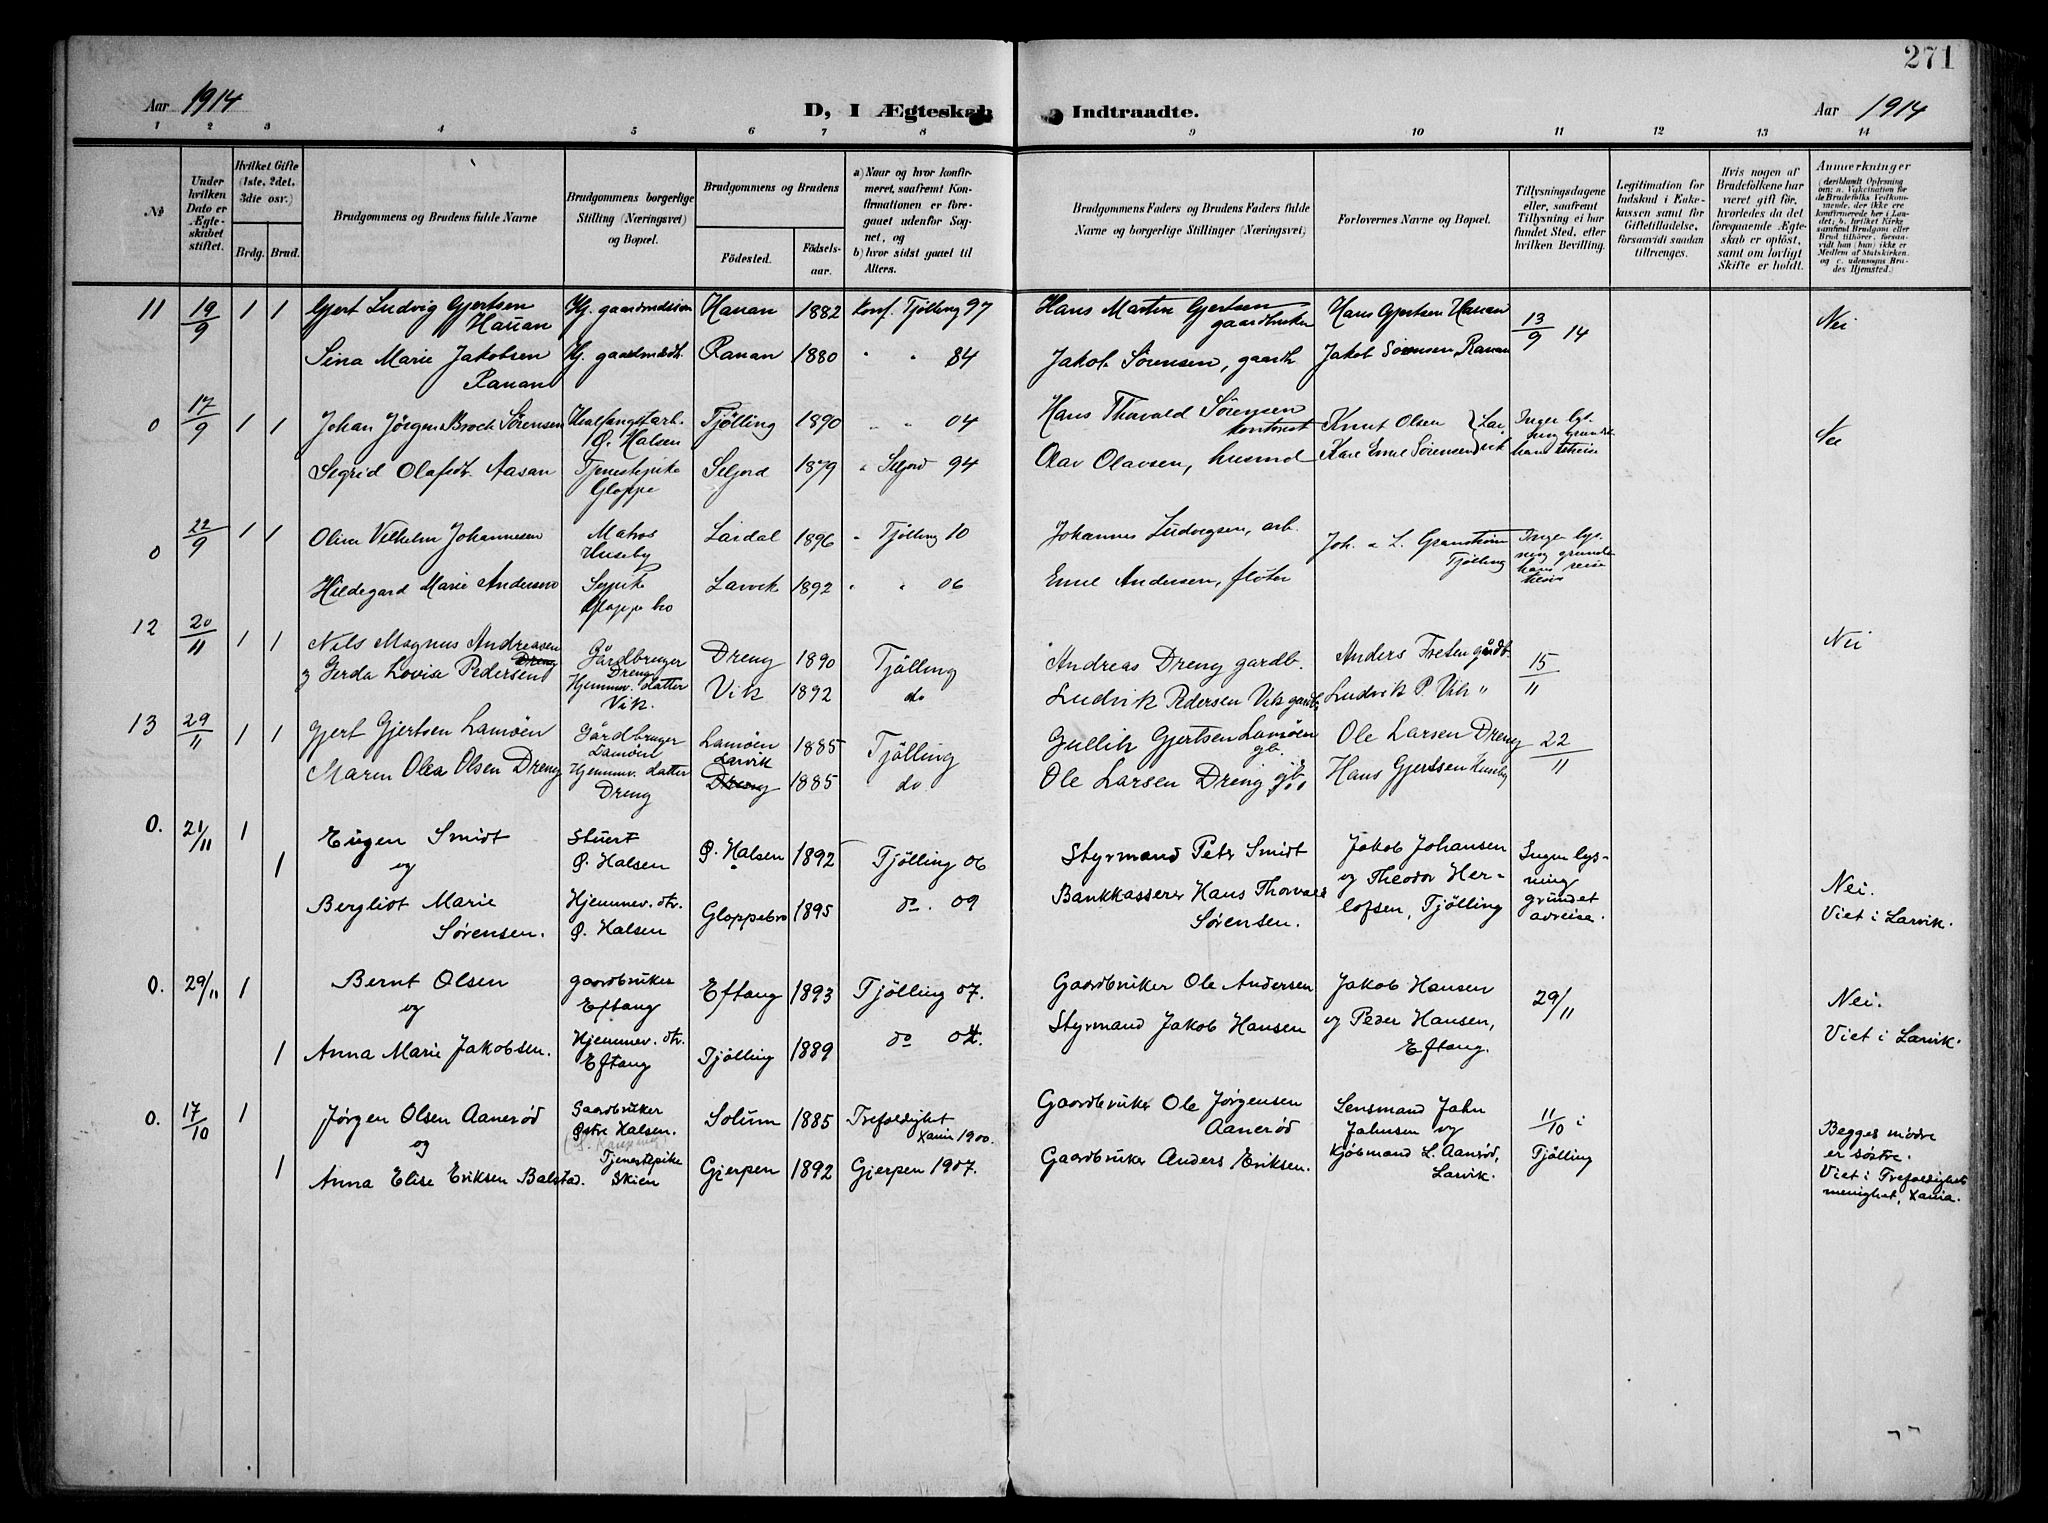 271
Aar 1914
D, I Ægteskab Indtraadte.
Aar 1914
1 2 3 4 5 6 7 8 9 10 11 12 13 14
No.
Under hvilken Dato er Ægteskabet stiftet.
Hvilket Gifte (1ste, 2det, 3die osv.)
Brdg. Brud.
Brudgommens og Brudens fulde Navne
Brudgommens borgerlige Stilling (Næringsvei) og Bopæl.
Brudgommens og Brudens
Fødested.
Fødselsaar.
a) Naar og hvor konfirmeret, saafremt Konfirmationen er foregaaet udenfor Sognet, og
b) hvor sidst gaaet til Alters.
Brudgommens Faders og Brudens Faders fulde Navne og borgerlige Stillinger (Næringsvei)
Forlovernes Navne og Bopæl.
Tillysningsdagene eller, saafremt Tillysning ei har fundet Sted, efter hvilken Bevilling.
Legitimation for Indskud i Enkekassen samt for Giftetilladelse, forsaavidt saadan tiltrænges.
Hvis nogen af Brudefolkene har været gift før, hvorledes da det foregaaende Ægteskab er opløst, samt om lovligt Skifte er holdt.
Anmærkninger
(deriblandt Oplysning om: a. Vakcination for de Brudefolks Vedkommende, der ikke ere konfirmerede her i Landet; b. hvilket Kirkesamfund Brudgom eller Brud tilhører, forsaavidt han (hun) ikke er Medlem af Statskirken, og c. udensogns Brudes Hjemsted.)
11 19/9 1 1 Gjert Ludvig Gjertsen Hauan
Hj. gaardmdssøn Hauan 1882 Konf. Tjølling 97
Hans Martin Gjertsen gaardbruker
Hans Gjertsen Hauan
13/9 14
Nei
Sina Marie Jakobsen Ranan
Hj. gaardmædt. Ranan 1880 " " 84
Jakob Sørensen, gaardb
Jakob Sørensen, Ranan
0 17/9 1 1 Johan Jørgen Broch Sørensen
Hvalfangstarb. Ø. Halsen Tjølling 1890 " " 04
Hans Thorvald Sørensen kontorist
Knut Olsen
Karl Emil Sørensen } Larvik
Ingen lysning grundet hans reise
Nei
Sigrid Olafsdt. Aasan
Tjenestepike Gloppe Seljord 1879 " Seljord 94
Olav Olavsen, husmd
0 22/9 1 1 Oliver Vilhelm Johannesen
Matros Huseby Lardal 1896 " Tjølling 10
Johannes Ludvigsen, arb.
Joh. a L. Granström Tjølling
Ingen lysning grundet hans reise
Hildegard Marie Andersen
Sypike Gloppe bro Larvik 1892 " " 06
Emil Andersen, fløter
12 20/11 1 1 Nils Magnus Andreasen Dreng
Gårdbruger Dreng Dreng 1890 Tjølling
Andreas Dreng gardb.
Anders Freten gårdb.
15/11
Nei
og Gerda Lovise Pedersen
Hjemmev. datter Vik. Vik 1892 do
Ludvik Pedersen Vik gardb.
Ludvik P. Vik "
13 29/11 1 1 Gjert Gjertsen Lamøen
Gårdbruger Lamøen Lamøen 1885 Tjølling
Gullik Gjertsen Lamøen gb.
Ole Larsen Dreng
22/11
Maren Olea Olsen Dreng
Hjemmev. datter Dreng Larvik Dreng 1885 do.
Ole Larsen Dreng
Hans Gjertsen Huseby
0. 21/11 1 Eugen Smidt
Stuert Ø. Halsen Ø. Halsen 1892 Tjølling 06
Styrmand Peter Smidt
Jakob Johansen og Theodor Herlofsen, Tjølling
Ingen lysning grundet avreise.
og
1 Bergliot Marie Sørensen.
Hjemmev. dtr. Ø. Halsen Gloppebro 1895 do. 09
Bankkasserer Hans Thorvald Sørensen.
Nei.
Viet i Larvik.
0. 29/11 1 Bernt Olsen
gaardbruker Eftang Eftang 1893 Tjølling 07.
Gaardbruker Ole Andersen
Jakob Hansen og Peder Hansen, Eftang.
29/11
Nei.
og
1 Anna Marie Jakobsen.
Hjemmev. dtr. Eftang Tjølling 1889 do 04.
Styrmand Jakob Hansen
Viet i Larvik.
0. 17/10 1 Jørgen Olsen Aanerød
Gaardbruker Østre Halsen. Solum 1885 Trefoldighet Xania 1900.
Gaardbruker Ole Jørgensen Aanerød
Lensmand Jahn Jahnsen og Kjøbmand L. Aanrød, Larvik.
11/10 i Tjølling
Begges mødre er søstre.
Viet i Trefoldighets menighet, Xania.
og
1 Anna Elise Eriksen Balstad.
Tjenestepike Skien Gjerpen 1892 Gjerpen 1907.
Gaardbruker Anders Eriksen.